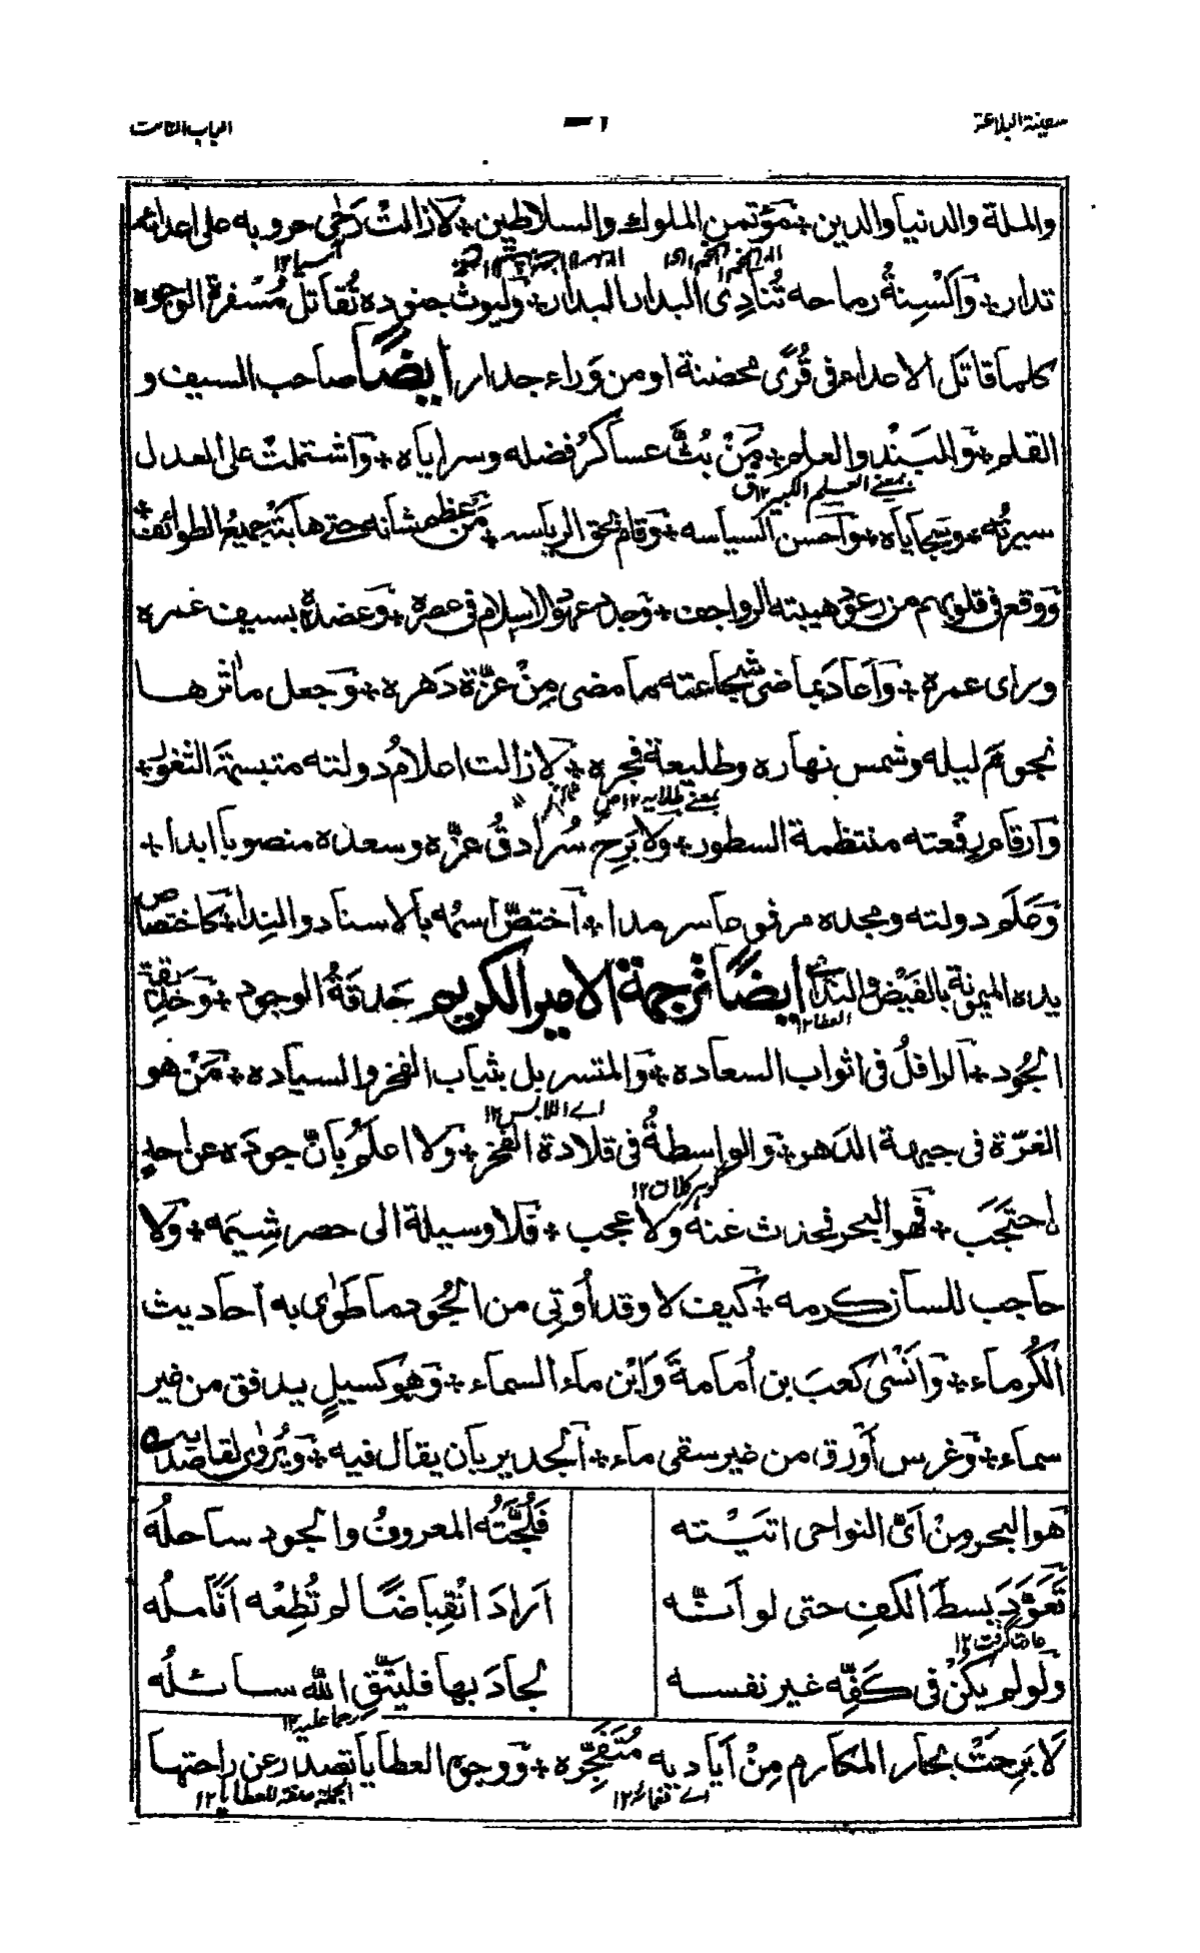 سفينة البلاغة
الباب الثامن
والملة والدنيا والدين ÷ مؤتمن الملوك والسلاطين ÷ لا زالتْ رَحٰى حروبه على اعدائه
آسيا ١٢
تدار ÷ وَاَلْسِنةُ رماحه تُنادِى البدار البدار ÷ وليوث جنوده تُقاتل مُسْفرة الوجوه
كلما قاتَل الاعداء فى قُرًى محصنة او من وَراء جدار ايضًا صاحب السيف و
القلم ÷ وَالبَنْد والعلم ÷ مَنْ بُثَّ عساكرُ فضله وسراياه ÷ وَاشتملتْ على العدل
بمعنے العلم الكبير ١٢ ق
سيرتُه ÷ وسجاياه ÷ وَاَحسن السياسه ÷ وَقام بحق الرياسه ÷ مَن عظم شانه حتے هابَتْه جميعُ الطوائف ÷
وَوقع فى قلوبهم من هيبته الرواجف ÷ وَجدد عهود الاسلام فى عصره ÷ وَعضده بسيف عمره
وراى عمره ÷ وَاَعاد بماضى شجاعته ما مضى مِنْ عزّة دَهره ÷ وَجعل ماٰثرها
نجوم ليله وشمس نهاره وطليعة فجره ÷ لا زالت اعلامُ دولته متبسمة الثغور ÷
بمعنے طلايه ١٢ ص
وَارقام رِفْعته منتظمة السطور ÷ ولا بَرِحَ سُرادقُ عزّه وسعده منصوبا ابدا ÷
وَعَلَم دولته ومجده مرفوعا سرمدا ÷ اَختصّ اسمُه بالاسناد والنِداء ÷ كاختصاص
يده الميمونة بالفَيْض والنَدٰى ايضًا ترجمة الامير الكريم حَدقةُ الوجود ÷ وَحديقة
العطا ١٢
الجُود ÷ الرافلُ فى اثواب السعاده ÷ وَالمتسربل بثياب الفخر والسياده ÷ مَنْ هو
اے اللابس ١٢
الغرّة فى جبهة الدهر ÷ وَالواسطةُ فى قلادة الفخر ÷ وَلا اعلَمُ بانّ جوده عن احدٍ
گوهر كلان ١٢
احتَجَب ÷ فهو البحر فحدث عنه ولا عجب ÷ فَلا وسيلة الى حصر شِيَمه ÷ وَلا
حاجب للسان كرمه ÷ كَيف لا وقد اُوتِى من الجُود ما طَوٰى به اَحاديث
الكُرماء ÷ وَاَنْسٰى كعبَ بن اُمامةَ وَابْن ماء السماء ÷ وَهو كسيلٍ يدفق من غير
سماء ÷ وَغرس اَوْرق من غير سقى ماء ÷ اَلجدير بان يقال فيه ÷ وَيُروٰى لقاصديه
هو البحر مِنْ اَىّ النواحى اتيْته
فَلُجَّتُه المعروفُ والجود ساحلُه
تَعَوَّدَ بسطَ الكف حتى لو اَنّه
اَرادَ انْقِباضًا لم تُطِعْه اَنَاملُه
عادت گرفت ١٢
وَلو لم يكُنْ فى كَفِّه غير نفسه
لجادَ بها فليَتّقِ اللهَ سائلُه
لا بَرِحَتْ بحار المكارم مِنْ اَياديه مُتَفجِّره ÷ وَوجوه العطايا تصدر عن راحتها
اے نعمائه ١٢
الجملة صفة للعطايا ١٢